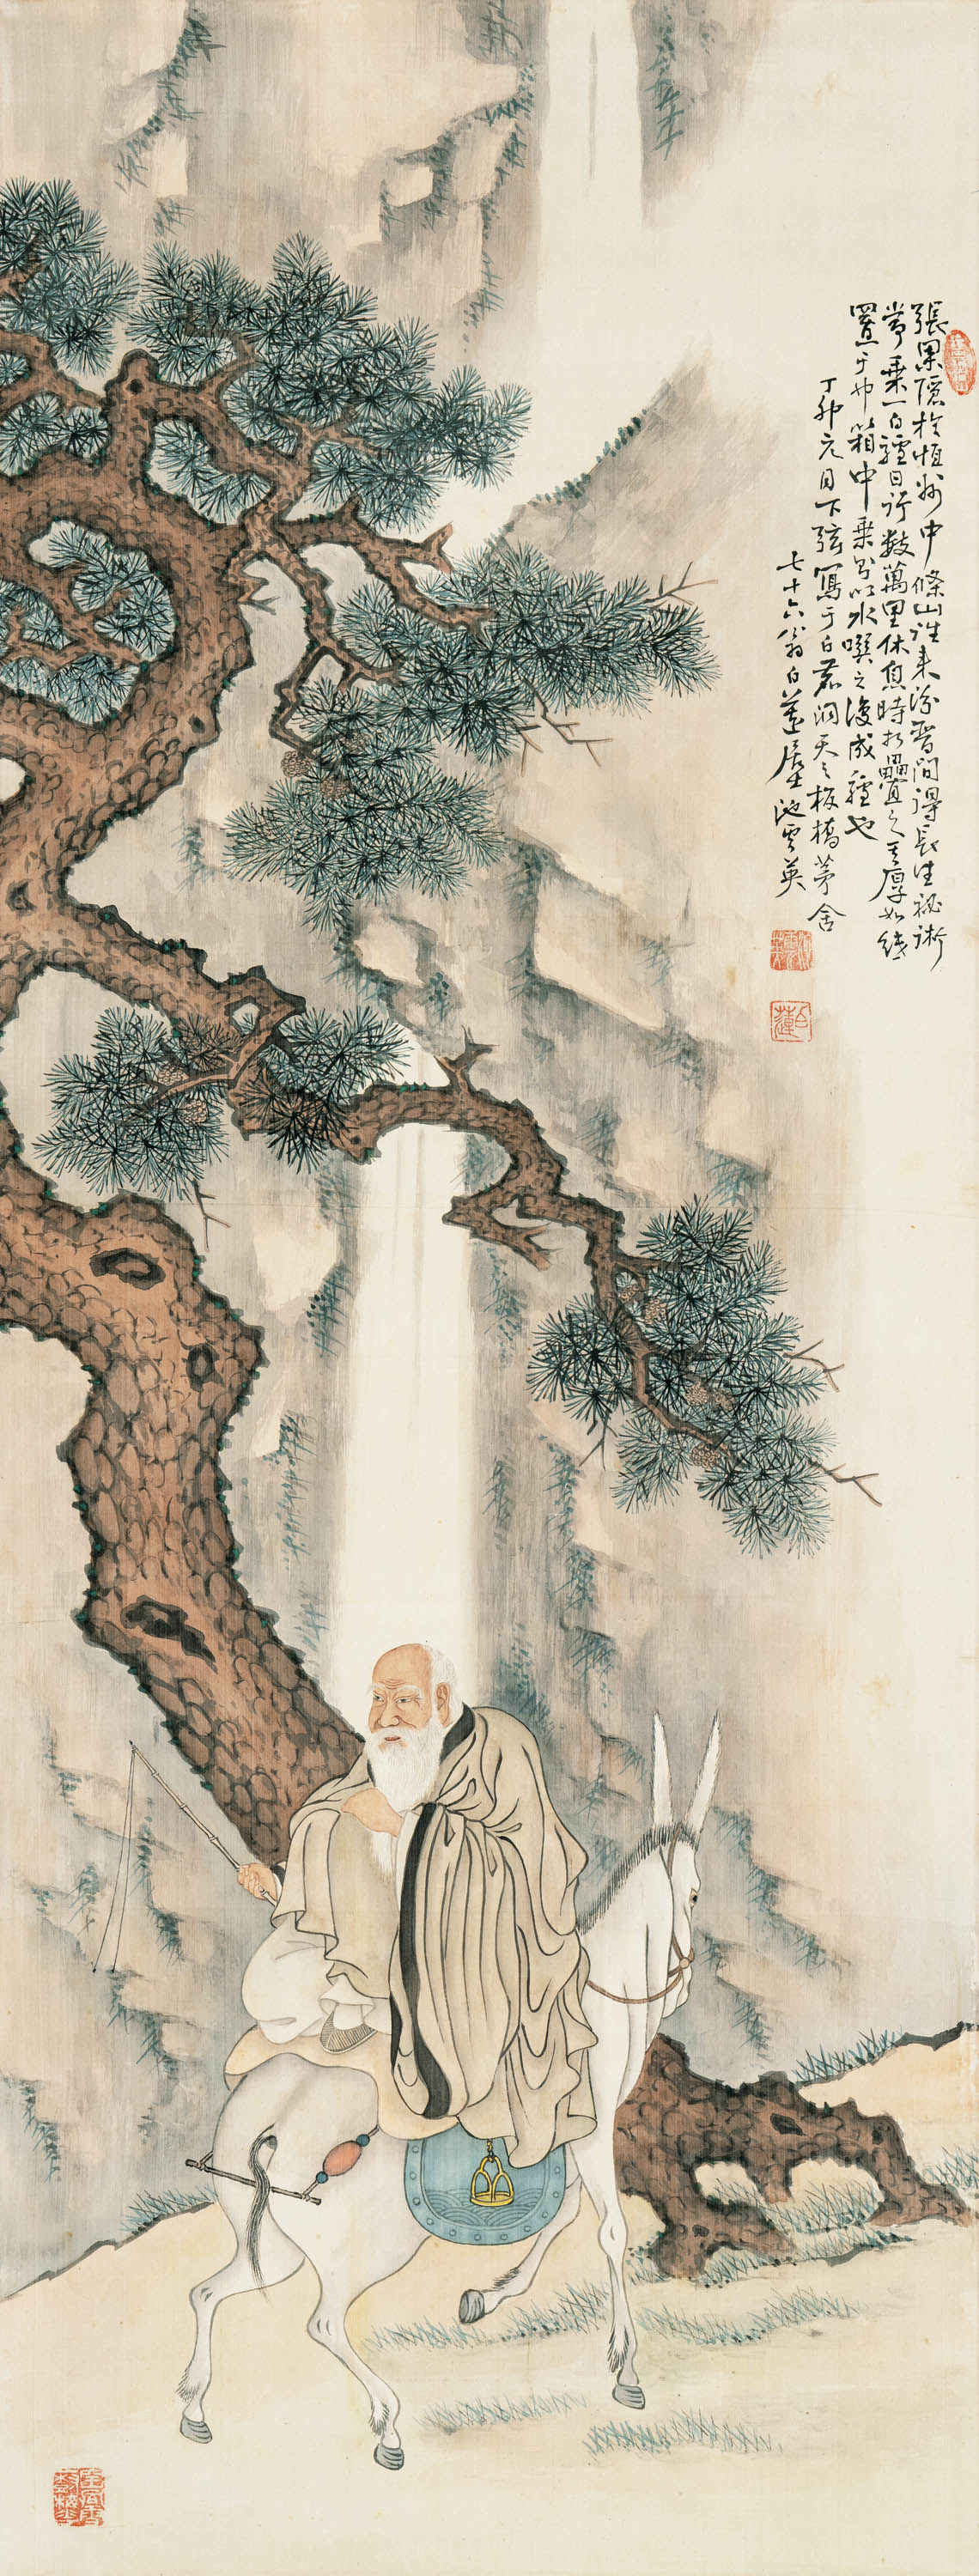 張果隱於恒州中條山往來汾晉間得長生祕術
常乘一白驢日行數萬里休息時折疊之其厚如紙
置于巾箱中乘則以水噀之復成驢也
丁卯元月下弦寫于白鹿洞天之板橋茅舍
七十六翁白蓮居士池雲英
白蓮